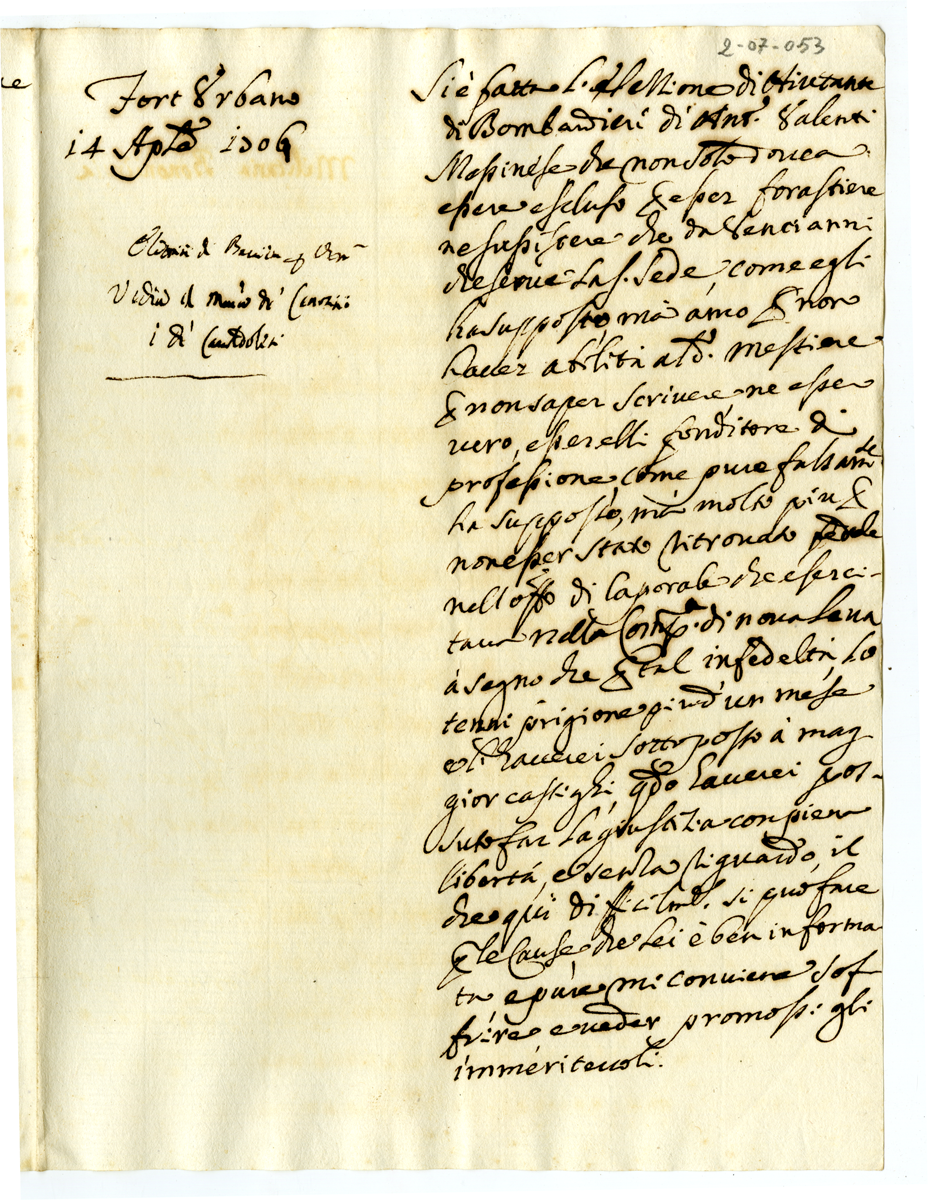 2-07-053
Fort Urbano
14 Aple 1706
Vedia il
i di
Si è fatta l'elettione di Aiutante
di Bombardieri di Ant.º Valenti
Messinese che non solo dovea
essere escluso p esser forastiere
ne sussistere che da venti anni
che serve la S. Sede, come egli
ha supposto, mà anco p non
haver abilità al d.º mestiere
p non saper scrivere ne esser
vero, esser elli fonditore di
professione, come pure falsam.te
ha supposto, mà molto più p
non esser stato ritrovato fedele
nell'offº di Caporale che eserci-
tava nella Comp.a di nova Leva
à segno che p tal infedeltà, lo
tenni prigione più d'un mese
e l'haverei sottoposto à mag
gior castighi, qdo haverei pos-
suto far la giustizia con piena
libertà, e senza riguardo, il
che quì difficilmt. si può fare
p le Cause che Lei è ben informa
ta, e pure mi conviene sof
frire e veder promossi gli
immeritevoli.